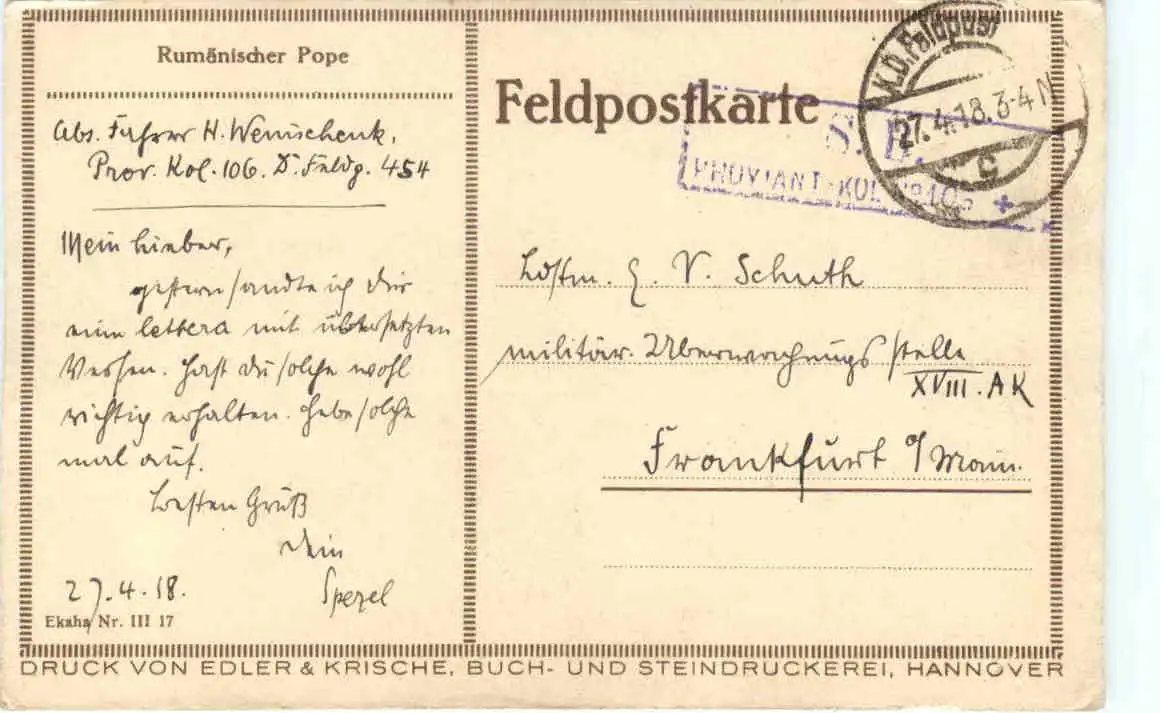 Rumänischer Pope
Abs. Fahrer H. Wenischenk,
Prov. Kol. 106. D. Feldp. 454
Mein Lieber,
gestern sandte ich Dir
eine lettera mit übersetzten
Versen. Hast du solche wohl
richtig erhalten. Hebe solche
mal auf.
Besten Gruß
Dein
Spezel
27.4.18.
Ekaha Nr. III 17
Feldpostkarte
K.D. Feldpost
27.4.18.3-4N
c
S. B.
PROVIANT-KOL
Ldstm. E. V. Schuth
militär. Überwachungsstelle
XVIII. AK
Frankfurt a/Main.
DRUCK VON EDLER & KRISCHE, BUCH- UND STEINDRUCKEREI, HANNOVER